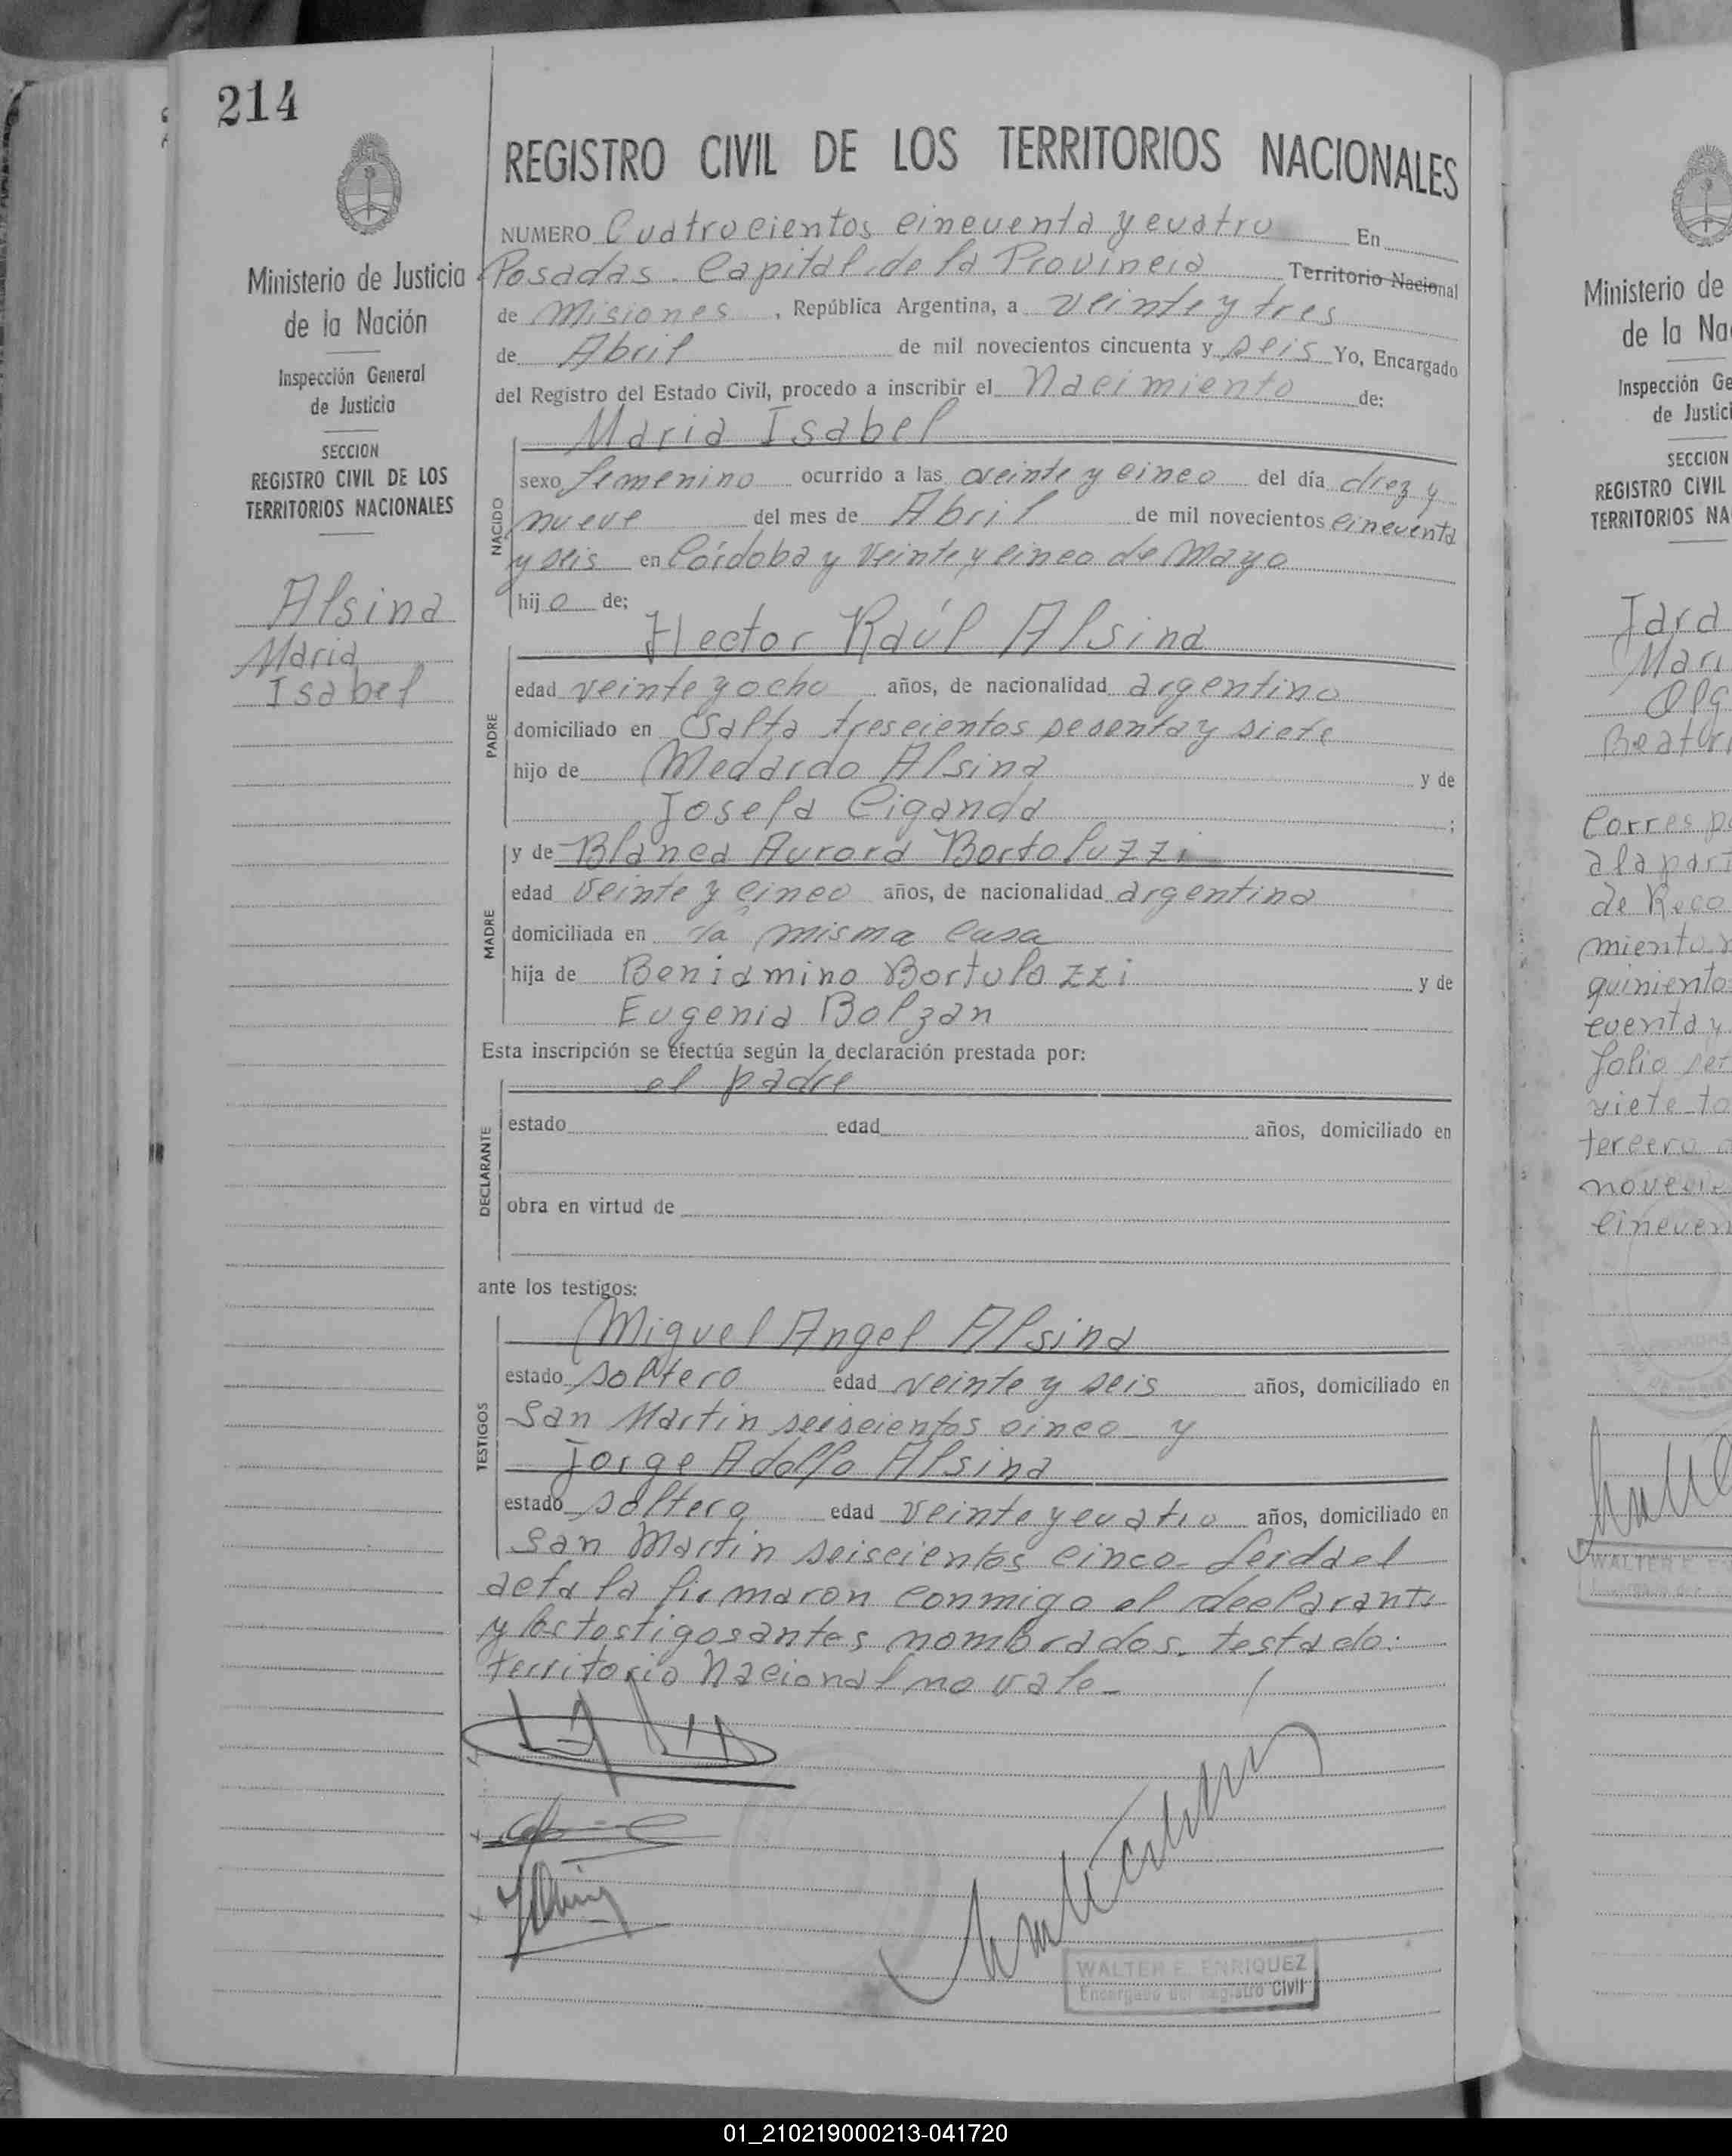 214
REGISTRO CIVIL DE LOS TERRITORIOS NACIONALES
Ministerio de Justicia
de la Nación
Inspección General
de Justicia
SECCION
REGISTRO CIVIL DE LOS
TERRITORIOS NACIONALES
Alsina
Maria
Isabel
NUMERO Cuatrocientos cincuenta y cuatro En
Posadas. Capital de la Provincia Territorio Nacional
de Misiones, República Argentina, a veinte y tres
de Abril de mil novecientos cincuenta y seis Yo, Encargado
del Registro del Estado Civil, procedo a inscribir el Nacimiento de:
NACIDO
Maria Isabel
sexo femenino ocurrido a las veinte y cinco del día diez y
nueve del mes de Abril de mil novecientos cincuenta
y seis en Córdoba y Veinte y cinco de Mayo
hija de;
PADRE
Hector Raúl Alsina
edad veinte y ocho años, de nacionalidad argentino
domiciliado en Salta trescientos sesenta y siete
hijo de Medardo Alsina y de
Josefa Ciganda ;
MADRE
y de Blanca Aurora Bortoluzzi
edad veinte y cinco años, de nacionalidad argentina
domiciliada en la misma casa
hija de Beniamino Bortolozzi y de
Eugenia Bolzan
Esta inscripción se efectúa según la declaración prestada por:
DECLARANTE
el padre
estado edad años, domiciliado en
obra en virtud de
ante los testigos:
TESTIGOS
Miguel Angel Alsina
estado soltero edad veinte y seis años, domiciliado en
San Martin seiscientos cinco y
Jorge Adolfo Alsina
estado soltero edad veinte y cuatro años, domiciliado en
San Martin seiscientos cinco. Leida el
acta la firmaron conmigo el declarante
y los testigos antes nombrados. testado:
territorio Nacional no vale-
WALTER E. ENRIQUEZ
Encargado del Registro Civil
Ministerio de
de la Na
Inspección Ge
de Justici
SECCION
REGISTRO CIVIL
TERRITORIOS NA
Jara
Mari
Olg
Beatri
Corres po
a la part
de Reco
miento
quiniento
cuenta y
folio
siete to
tercero
novecie
cincuen
WALTER E.
01_210219000213-041720